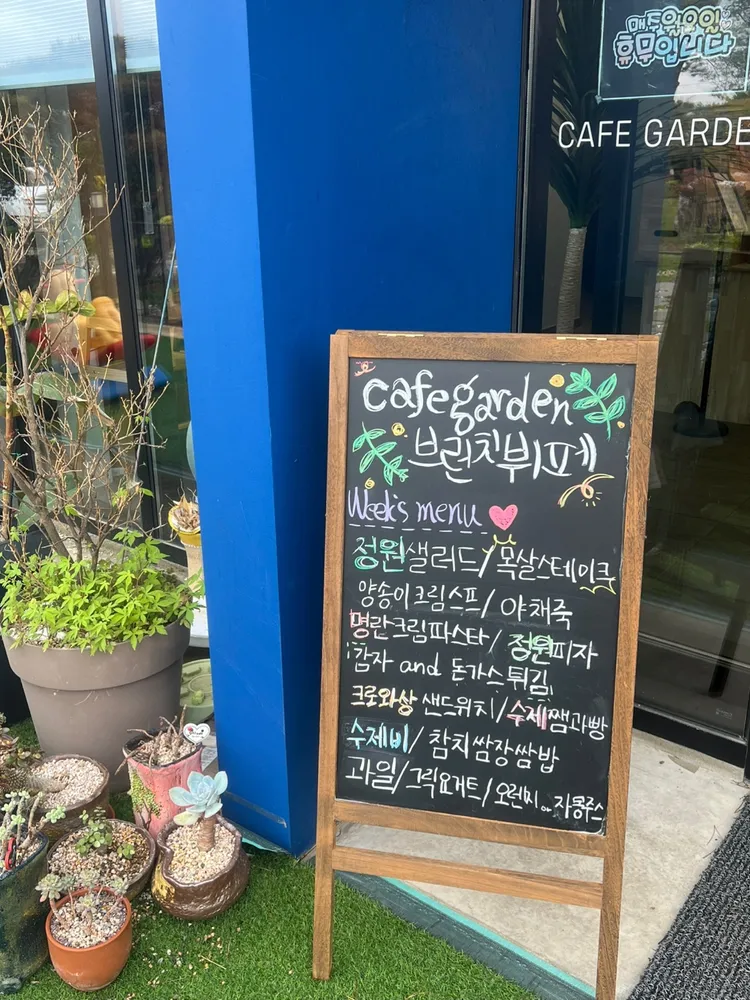 매주 월요일
휴무입니다
CAFE GARDE
cafe garden
브런치뷔페
Week's menu
정원샐러드/목살스테이크
양송이크림스프/야채죽
명란크림파스타/정원피자
감자 and 돈가스튀김
크로와상 샌드위치/수제쨈과빵
수제비/참치쌈장쌈밥
과일/그릭요거트/오렌지or자몽쥬스